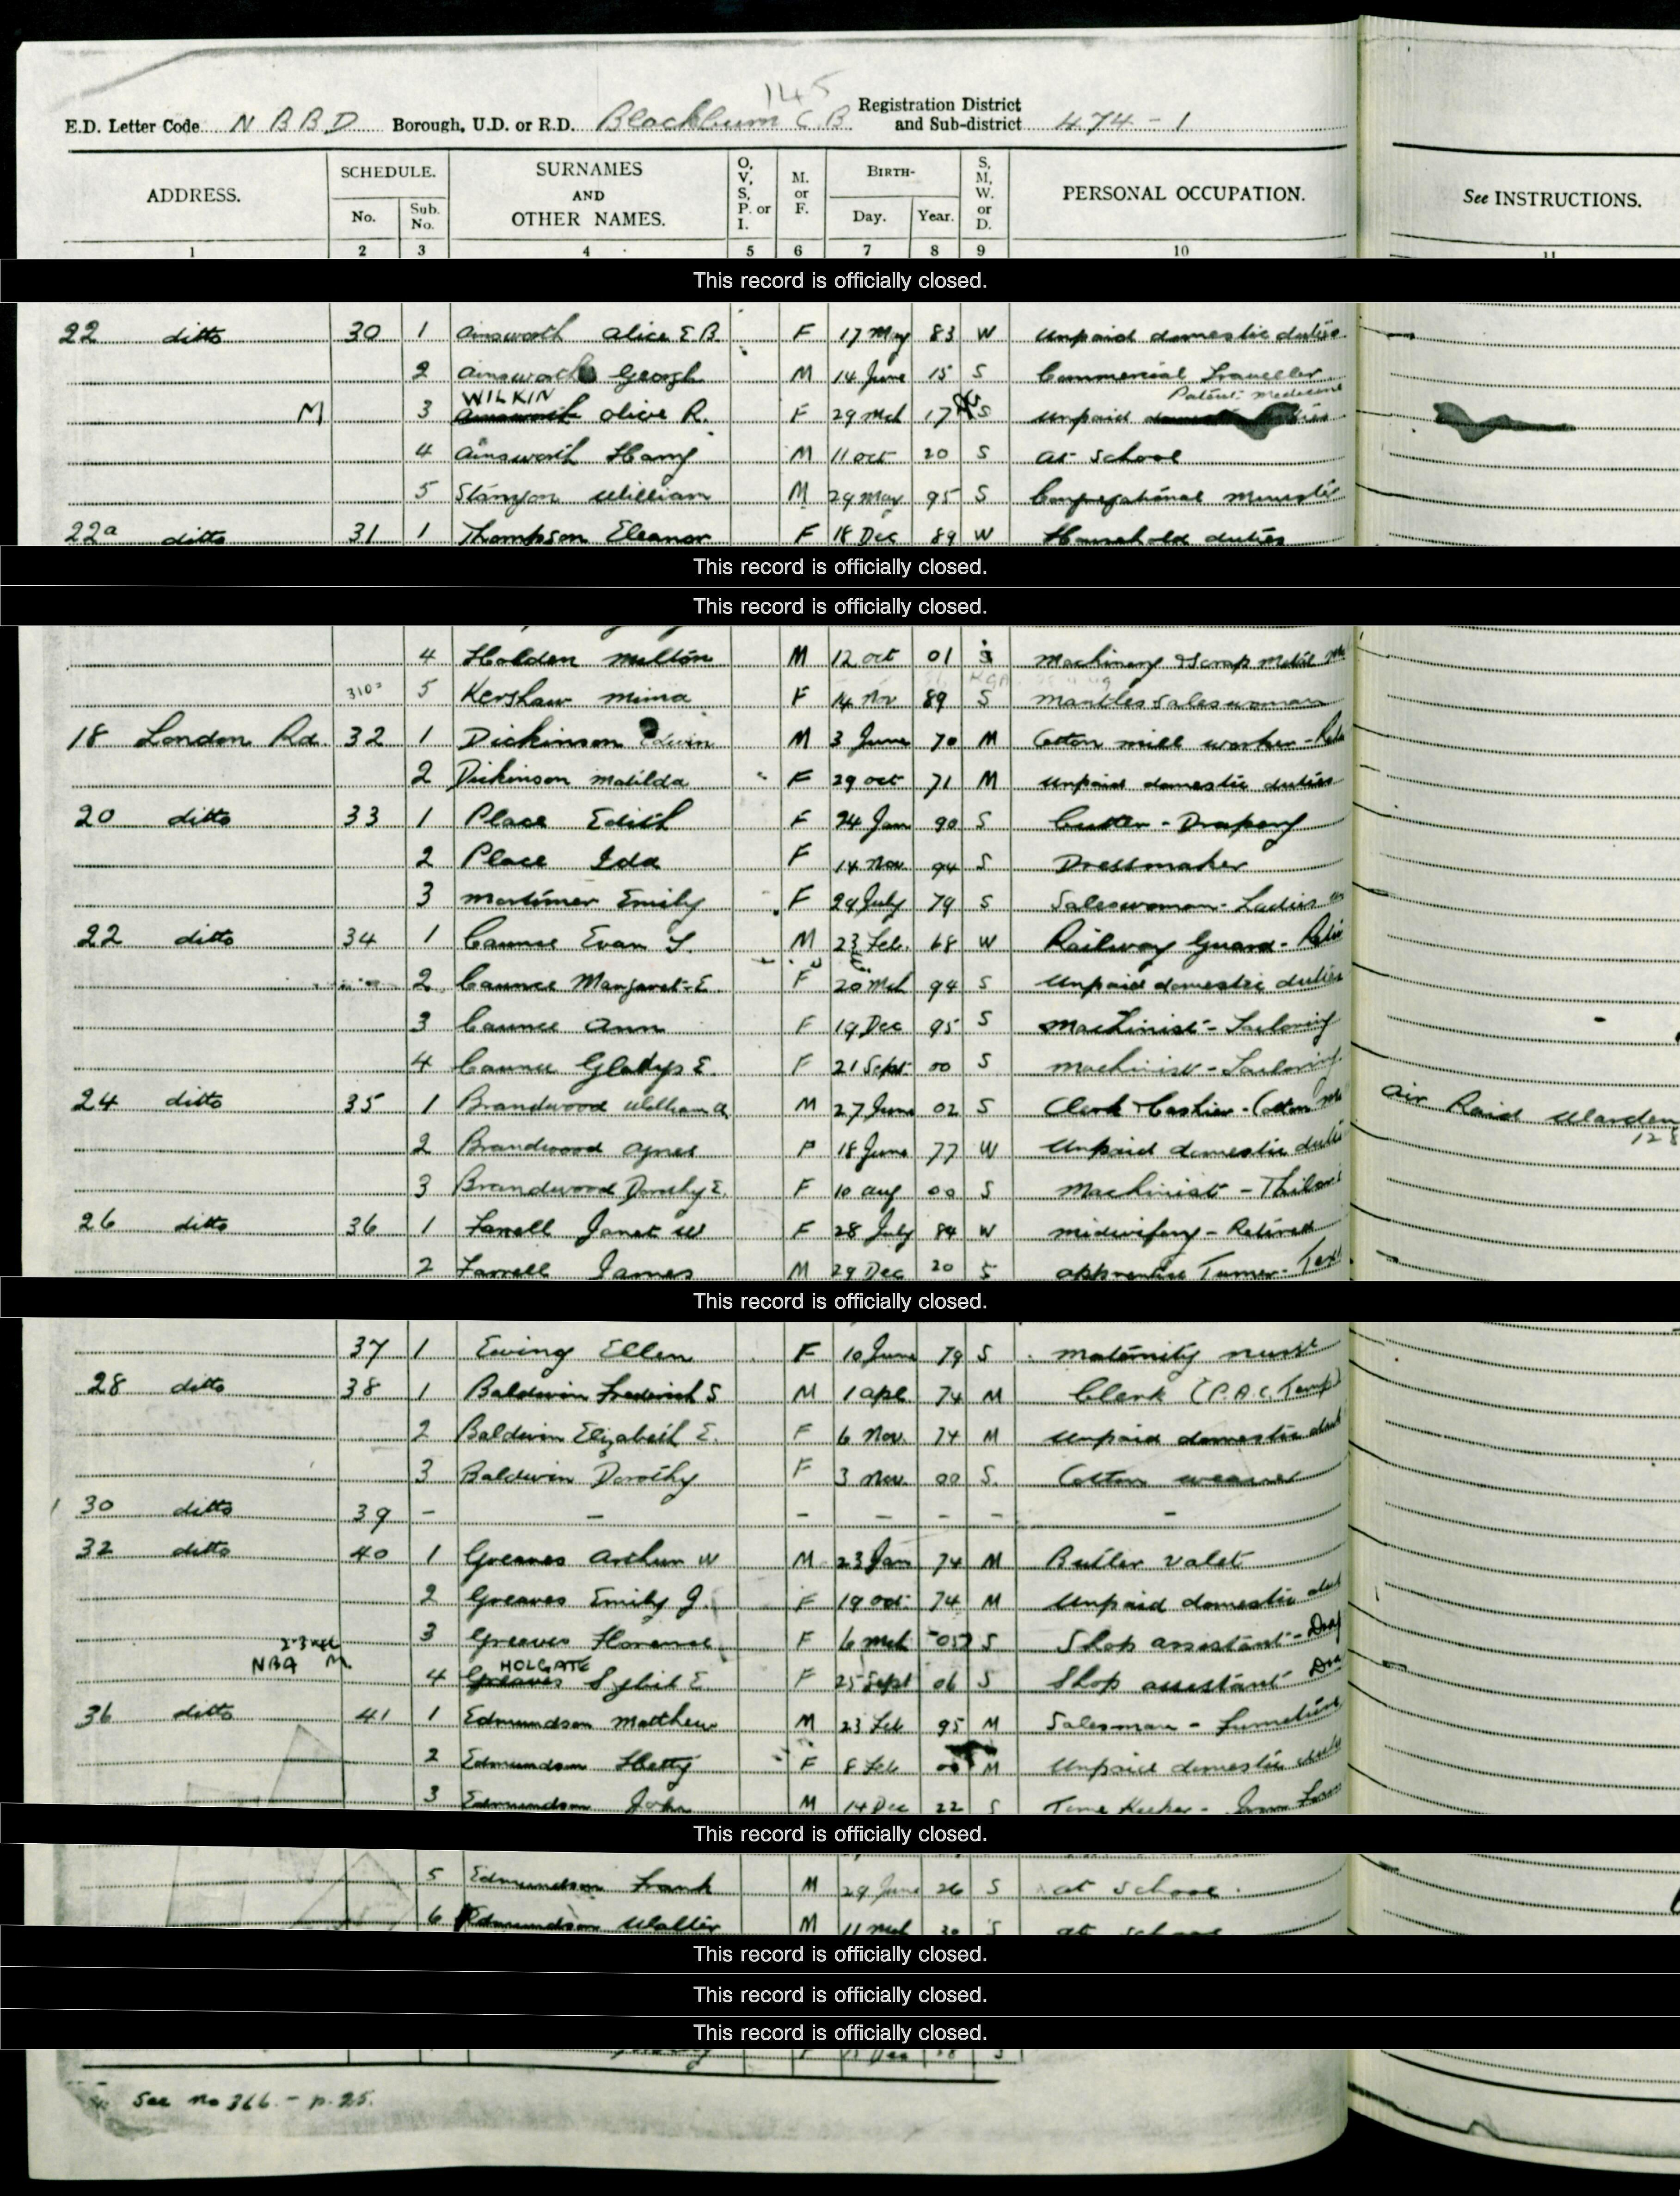 145
E.D. Letter Code N B B D Borough, U.D. or R.D. Blackburn C.B. Registration District and Sub-district 474-1
ADDRESS. SCHEDULE. No. Sub. No. SURNAMES AND OTHER NAMES. O, V, S, P. or I. M. or F. BIRTH- Day. Year. S, M, W. or D. PERSONAL OCCUPATION. See INSTRUCTIONS.
1 2 3 4 5 6 7 8 9 10 11
This record is officially closed.
22 ditto 30 1 Ainsworth Alice E B. F 17 May 83 W Unpaid domestic duties
2 Ainsworth George M 14 June 15 S Commercial Traveller
Patent medicine
WILKIN
M 3 Ainsworth Olive R. F 29 Mch 17 S Unpaid domestic duties
4 Ainsworth Harry M 11 Oct 20 S At School
5 Stanyon William M 29 May 95 S Congregational minister
22a ditto 31 1 Thompson Eleanor F 18 Dec 89 W Household duties
This record is officially closed.
This record is officially closed.
4 Holden Milton M 12 Oct 01 S Machinery & Scrap Metal
3102 5 Kershaw Mima F 14 Nov 89 S Mantles Saleswoman
18 London Rd. 32 1 Dickinson Edwin M 3 June 70 M Cotton mill worker -
2 Dickinson Matilda F 29 Oct 71 M Unpaid domestic duties
20 ditto 33 1 Place Edith F 24 Jan 90 S Cutter - Drapery
2 Place Ida F 14 Nov. 94 S Dressmaker
3 Mortimer Emily F 29 July 79 S Saleswoman - Ladies
22 ditto 34 1 Caunce Evan S. M 23 Feb. 68 W Railway Guard - Retir
2 Caunce Margaret E. F 20 Mch 94 S Unpaid domestic duties
3 Caunce Ann F 19 Dec 95 S Machinist - Tailoring
4 Caunce Gladys E. F 21 Sept 00 S Machinist - Tailoring
24 ditto 35 1 Brandwood William A. M 27 June 02 S Clerk & Cashier - Cotton Air Raid Warden
128
2 Brandwood Agnes F 18 June 77 W Unpaid domestic duties
3 Brandwood Dorothy E. F 10 Aug 00 S Machinist -
26 ditto 36 1 Farrell Janet W F 28 July 84 W Midwifery - Retired
2 Farrell James M 29 Dec 20 S Apprentice Turner - Text
This record is officially closed.
37 1 Ewing Ellen F 10 June 79 S Maternity nurse
28 ditto 38 1 Baldwin Frederick S M 1 Apl 74 M Clerk (P.A.C. Temp)
2 Baldwin Elizabeth E. F 6 Nov. 74 M Unpaid domestic dut
3 Baldwin Dorothy F 3 Nov. 00 S. Cotton weaver
30 ditto 39 - - - - - - -
32 ditto 40 1 Greaves Arthur W M 23 Jan 74 M Butler Valet
2 Greaves Emily J. F 19 Oct 74 M Unpaid domestic dut
3 Greaves Florence F 6 Mch 05 S Shop assistant - Drap
NBA M. HOLGATE
4 Greaves Sybil E F 25 Sept 06 S Shop assistant Dra
36 ditto 41 1 Edmundson Matthew M 23 Feb 95 M Salesman - Furniture
2 Edmundson Hetty F 8 Feb 00 M Unpaid domestic duti
3 Edmundson John M 14 Dec 22 S Time Keeper - Iron
This record is officially closed.
5 Edmundson Frank M 29 June 26 S at School
6 Edmundson Walter M 11 Mch 30 S at school
This record is officially closed.
This record is officially closed.
This record is officially closed.
See no 366. - p. 25.